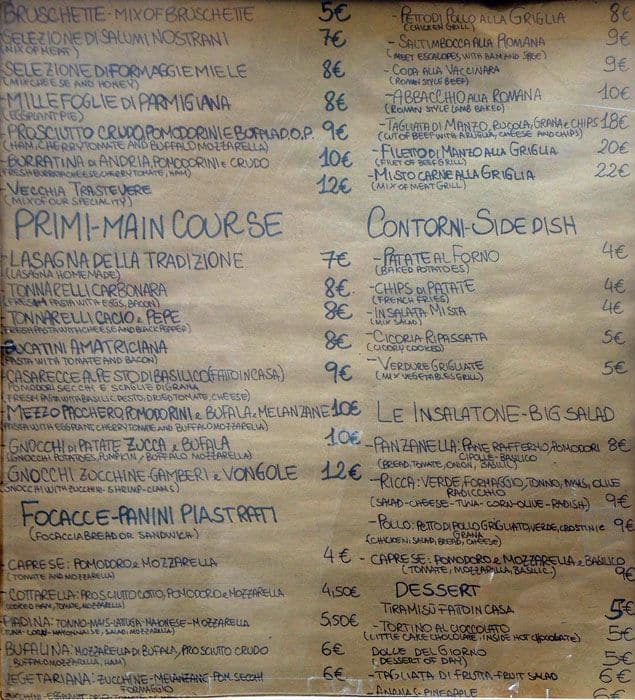 BRUSCHETTE - MIX OF BRUSCHETTE 5€
SELEZIONE DI SALUMI NOSTRANI 7€
(MIX OF MEAT)
SELEZIONE DI FORMAGGI E MIELE 8€
(MIX CHEESE AND HONEY)
- MILLEFOGLIE DI PARMIGIANA 8€
(EGGPLANT PIE)
- PROSCIUTTO CRUDO, POMODORINI E BUFALA D.O.P. 9€
(HAM, CHERRY TOMATO AND BUFFALO MOZZARELLA)
- BURRATINA DI ANDRIA, POMODORINI E CRUDO 10€
(FRESH BURRATA CHEESE, CHERRY TOMATO, HAM)
- VECCHIA TRASTEVERE 12€
(MIX OF OUR SPECIALITY)
PRIMI - MAIN COURSE
- LASAGNA DELLA TRADIZIONE 7€
(LASAGNA HOMEMADE)
TONNARELLI CARBONARA 8€
(FRESH PASTA WITH EGGS, BACON)
- TONNARELLI CACIO E PEPE 8€
(FRESH PASTA WITH CHEESE AND BLACK PEPPER)
BUCATINI AMATRICIANA 8€
(PASTA WITH TOMATO AND BACON)
CASARECCE AL PESTO DI BASILICO (FATTO IN CASA) 9€
POMODORI SECCHI E SCAGLIE DI GRANA
(FRESH PASTA WITH BASIL PESTO, DRIED TOMATO, CHEESE)
- MEZZO PACCHERO, POMODORINI E BUFALA, MELANZANE 10€
(PASTA WITH EGGPLANT, CHERRY TOMATO AND BUFFALO MOZZARELLA)
- GNOCCHI DI PATATE ZUCCA E BUFALA 10€
(GNOCCHI POTATOES, PUMPKIN E BUFFALO MOZZARELLA)
- GNOCCHI ZUCCHINE GAMBERI E VONGOLE 12€
(GNOCCHI WITH ZUCCHINI - SHRIMP - CLAMS)
FOCACCE - PANINI PIASTRATI
(FOCACCIA BREAD OR SANDWICH)
- CAPRESE: POMODORO E MOZZARELLA 4€
(TOMATO AND MOZZARELLA)
- COTTARELLA: PROSCIUTTO COTTO, POMODORO E MOZZARELLA 4,50€
(COOKED HAM, TOMATO, MOZZARELLA)
- PIADINA: TONNO - MAIS - LATTUGA - MAIONESE - MOZZARELLA 5,50€
(TUNA - CORN - MAYONNAISE, SALAD, MOZZARELLA)
BUFALINA: MOZZARELLA DI BUFALA, PROSCIUTTO CRUDO 6€
(BUFFALO MOZZARELLA, HAM)
VEGETARIANA: ZUCCHINE - MELANZANE POM. SECCHI 6€
FORMAGGIO
- PETTO DI POLLO ALLA GRIGLIA 8€
(CHICKEN GRILL)
- SALTIMBOCCA ALLA ROMANA 9€
(MEET ESCALOPES WITH HAM AND SAGE)
- CODA ALLA VACCINARA 9€
(ROMAN STYLE BEEF)
- ABBACCHIO ALLA ROMANA 10€
(ROMAN STYLE LAMB BAKED)
- TAGLIATA DI MANZO, RUCOLA, GRANA E CHIPS 18€
(CUT OF BEEF WITH ARUGULA, CHEESE AND CHIPS)
- FILETTO DI MANZO ALLA GRIGLIA 20€
(FILET OF BEEF GRILL)
- MISTO CARNE ALLA GRIGLIA 22€
(MIX OF MEAT GRILL)
CONTORNI - SIDE DISH
- PATATE AL FORNO 4€
(BAKED POTATOES)
- CHIPS DI PATATE 4€
(FRENCH FRIES)
- INSALATA MISTA 4€
(MIX SALAD)
- CICORIA RIPASSATA 5€
(CICORY COOKED)
- VERDURE GRIGLIATE 5€
(MIX VEGETABLES GRILL)
LE INSALATONE - BIG SALAD
- PANZANELLA: PANE RAFFERMO, POMODORI 8€
CIPOLLE - BASILICO
(BREAD, TOMATO, ONION, BASILIC)
- RICCA: VERDE, FORMAGGIO, TONNO, MAIS, OLIVE
RADICCHIO
(SALAD - CHEESE - TUNA - CORN - OLIVE - RADISH) 9€
- POLLO: PETTO DI POLLO GRIGLIATO, VERDE, CROSTINI E 9€
GRANA
(CHICKEN, SALAD, BREAD, CHEESE)
- CAPRESE: POMODORO E MOZZARELLA E BASILICO
(TOMATO, MOZZARELLA, BASILIC) 9€
DESSERT
TIRAMISÙ FATTO IN CASA 5€
- TORTINO AL CIOCCOLATO 5€
(LITTLE CAKE CHOCOLATE, INSIDE HOT CHOCOLATE)
DOLCE DEL GIORNO 5€
(DESSERT OF DAY)
- TAGLIATA DI FRUTTA - FRUIT SALAD 6€
- ANANAS - PINEAPPLE 6€